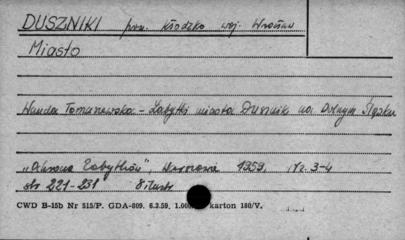 DUSZNIKI pow. Kłodzko woj. Wrocław
Miasto
Wanda Tomaszewska - Zabytki miasta Dusznik na Dolnym Śląsku
"Ochrona Zabytków", Warszawa 1959, nr. 3-4
str 221-231 8 ilustr
CWD B-15b Nr 515/P. GDA-809. 6.3.59. 1.000 karton 180/V.